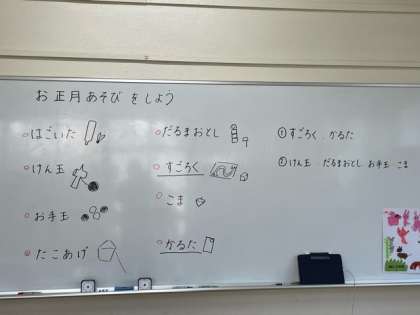 お正月あそびをしよう
はごいた
けん玉
お手玉
たこあげ
だるまおとし
すごろく
こま
かるた
①すごろく、かるた
②けん玉 だるまおとし お手玉 こま